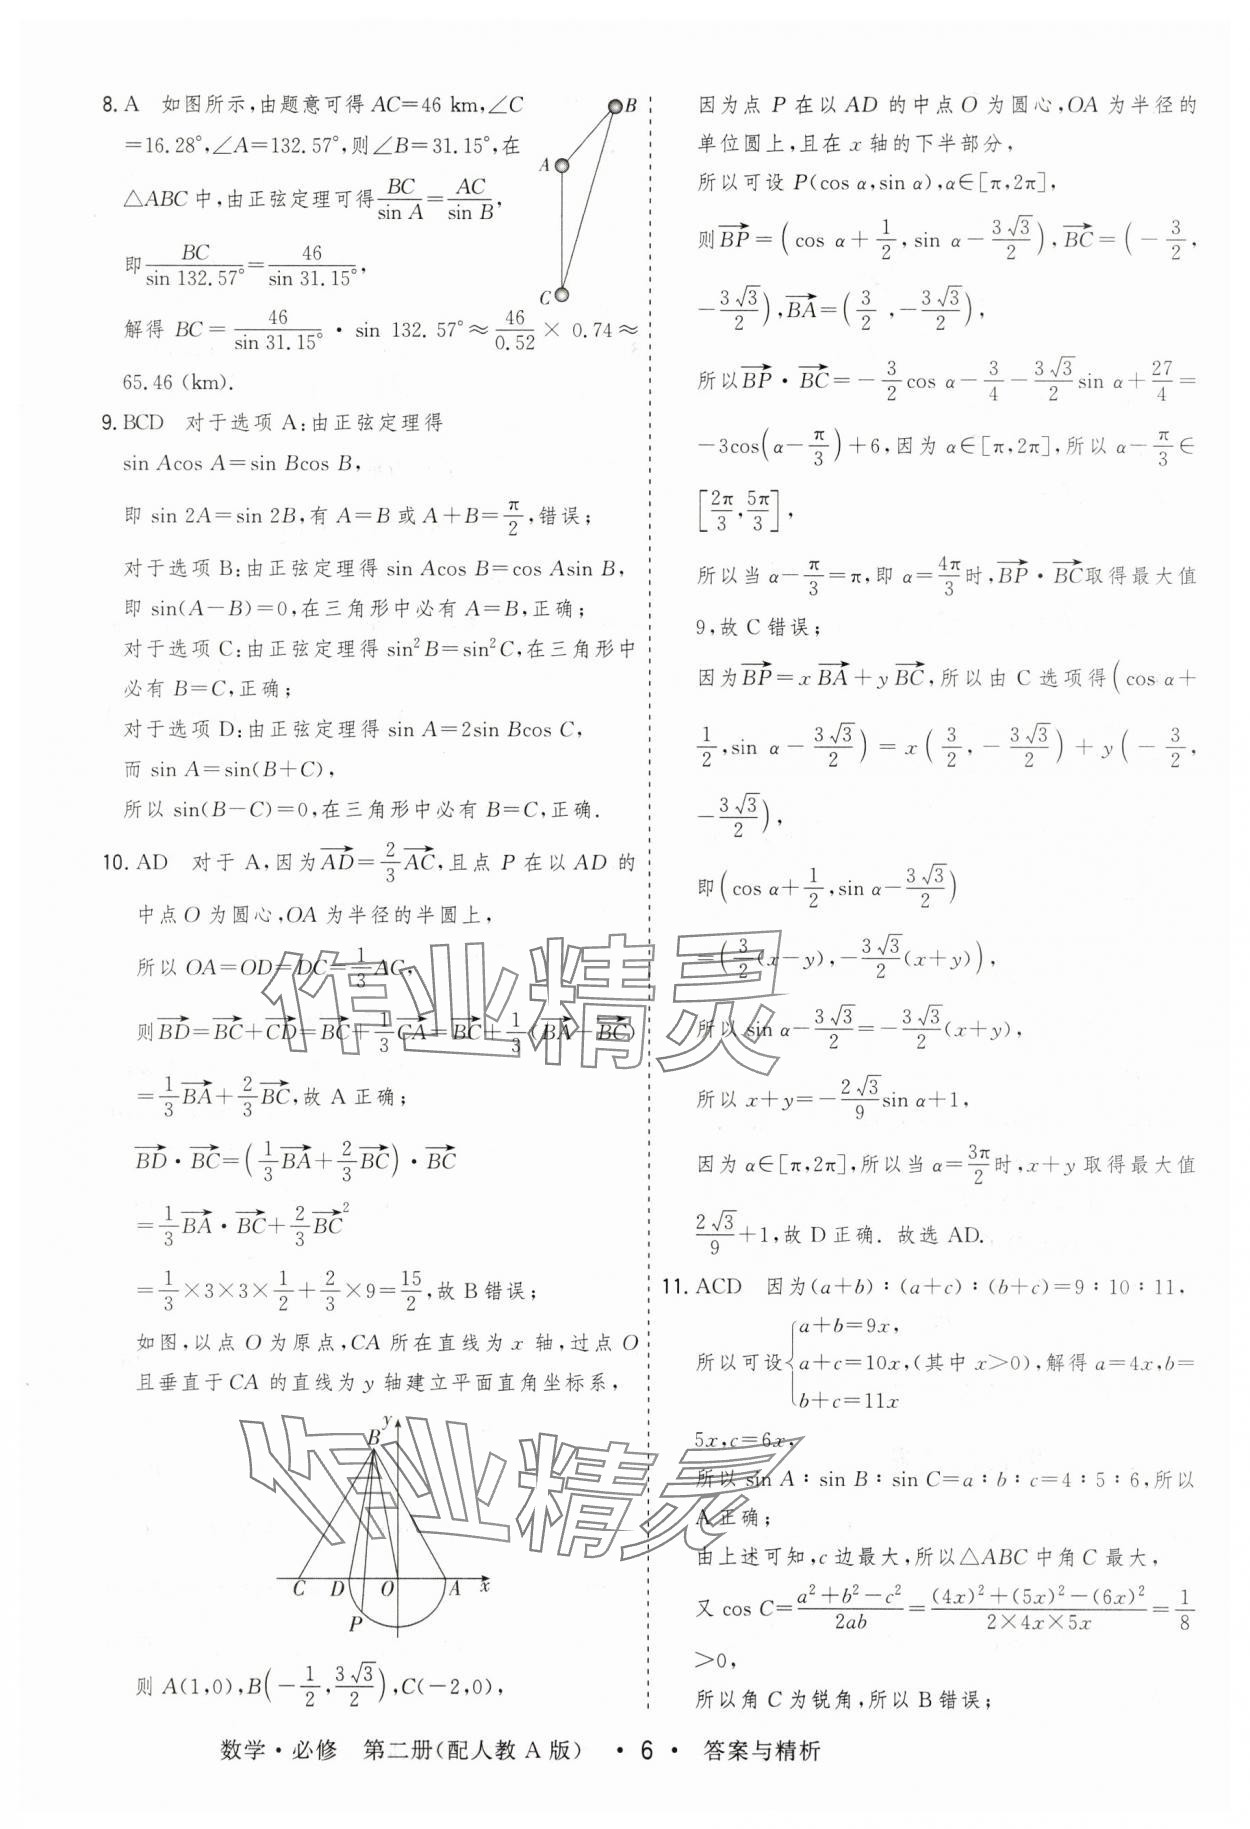 8. A　如图所示,由题意可得 AC=46 km,∠C
=16.28°,∠A=132.57°,则∠B=31.15°,在
△ABC 中,由正弦定理可得 BC/sin A = AC/sin B,
即 BC/sin 132.57° = 46/sin 31.15°,
解得 BC = 46/sin 31.15° · sin 132.57° ≈ 46/0.52 × 0.74 ≈
65.46 (km).
B
A
C
9. BCD　对于选项 A:由正弦定理得
sin Acos A=sin Bcos B,
即 sin 2A=sin 2B,有 A=B 或 A+B=π/2,错误;
对于选项 B:由正弦定理得 sin Acos B=cos Asin B,
即 sin(A-B)=0,在三角形中必有 A=B,正确;
对于选项 C:由正弦定理得 sin²B=sin²C,在三角形中
必有 B=C,正确;
对于选项 D:由正弦定理得 sin A=2sin Bcos C,
而 sin A=sin(B+C),
所以 sin(B-C)=0,在三角形中必有 B=C,正确.
10. AD　对于 A,因为 →AD = 2/3 →AC,且点 P 在以 AD 的
中点 O 为圆心,OA 为半径的半圆上,
所以 OA=OD=DC=1/3 AC,
则 →BD = →BC + →CD = →BC + 1/3 →CA = →BC + 1/3 (→BA - →BC)
= 1/3 →BA + 2/3 →BC,故 A 正确;
→BD · →BC = (1/3 →BA + 2/3 →BC) · →BC
= 1/3 →BA · →BC + 2/3 →BC²
= 1/3 ×3×3× 1/2 + 2/3 ×9 = 15/2,故 B 错误;
如图,以点 O 为原点,CA 所在直线为 x 轴,过点 O
且垂直于 CA 的直线为 y 轴建立平面直角坐标系,
y
B
C D O A x
P
则 A(1,0),B(-1/2, 3√3/2),C(-2,0),
因为点 P 在以 AD 的中点 O 为圆心,OA 为半径的
单位圆上,且在 x 轴的下半部分,
所以可设 P(cos α,sin α),α∈[π,2π],
则 →BP = (cos α + 1/2, sin α - 3√3/2), →BC = (-3/2,
-3√3/2), →BA = (3/2, -3√3/2),
所以 →BP · →BC = -3/2 cos α - 3/4 - 3√3/2 sin α + 27/4 =
-3cos(α - π/3) + 6,因为 α∈[π,2π],所以 α - π/3 ∈
[2π/3, 5π/3],
所以当 α - π/3 = π,即 α = 4π/3 时, →BP · →BC 取得最大值
9,故 C 错误;
因为 →BP = x →BA + y →BC,所以由 C 选项得 (cos α +
1/2, sin α - 3√3/2) = x(3/2, -3√3/2) + y(-3/2,
-3√3/2),
即 (cos α + 1/2, sin α - 3√3/2)
= (3/2 (x-y), -3√3/2 (x+y)),
所以 sin α - 3√3/2 = -3√3/2 (x+y),
所以 x+y = -2√3/9 sin α + 1,
因为 α∈[π,2π],所以当 α = 3π/2 时,x+y 取得最大值
2√3/9 + 1,故 D 正确. 故选 AD.
11. ACD　因为(a+b)∶(a+c)∶(b+c)=9∶10∶11,
所以可设 { a+b=9x,
a+c=10x,(其中 x>0),解得 a=4x,b=
b+c=11x
5x,c=6x,
所以 sin A∶sin B∶sin C=a∶b∶c=4∶5∶6,所以
A 正确;
由上述可知,c 边最大,所以△ABC 中角 C 最大,
又 cos C = (a²+b²-c²)/2ab = ((4x)²+(5x)²-(6x)²)/(2×4x×5x) = 1/8
>0,
所以角 C 为锐角,所以 B 错误;
作业精灵
作业精灵
数学·必修　第二册(配人教 A 版)　· 6 ·　答案与精析